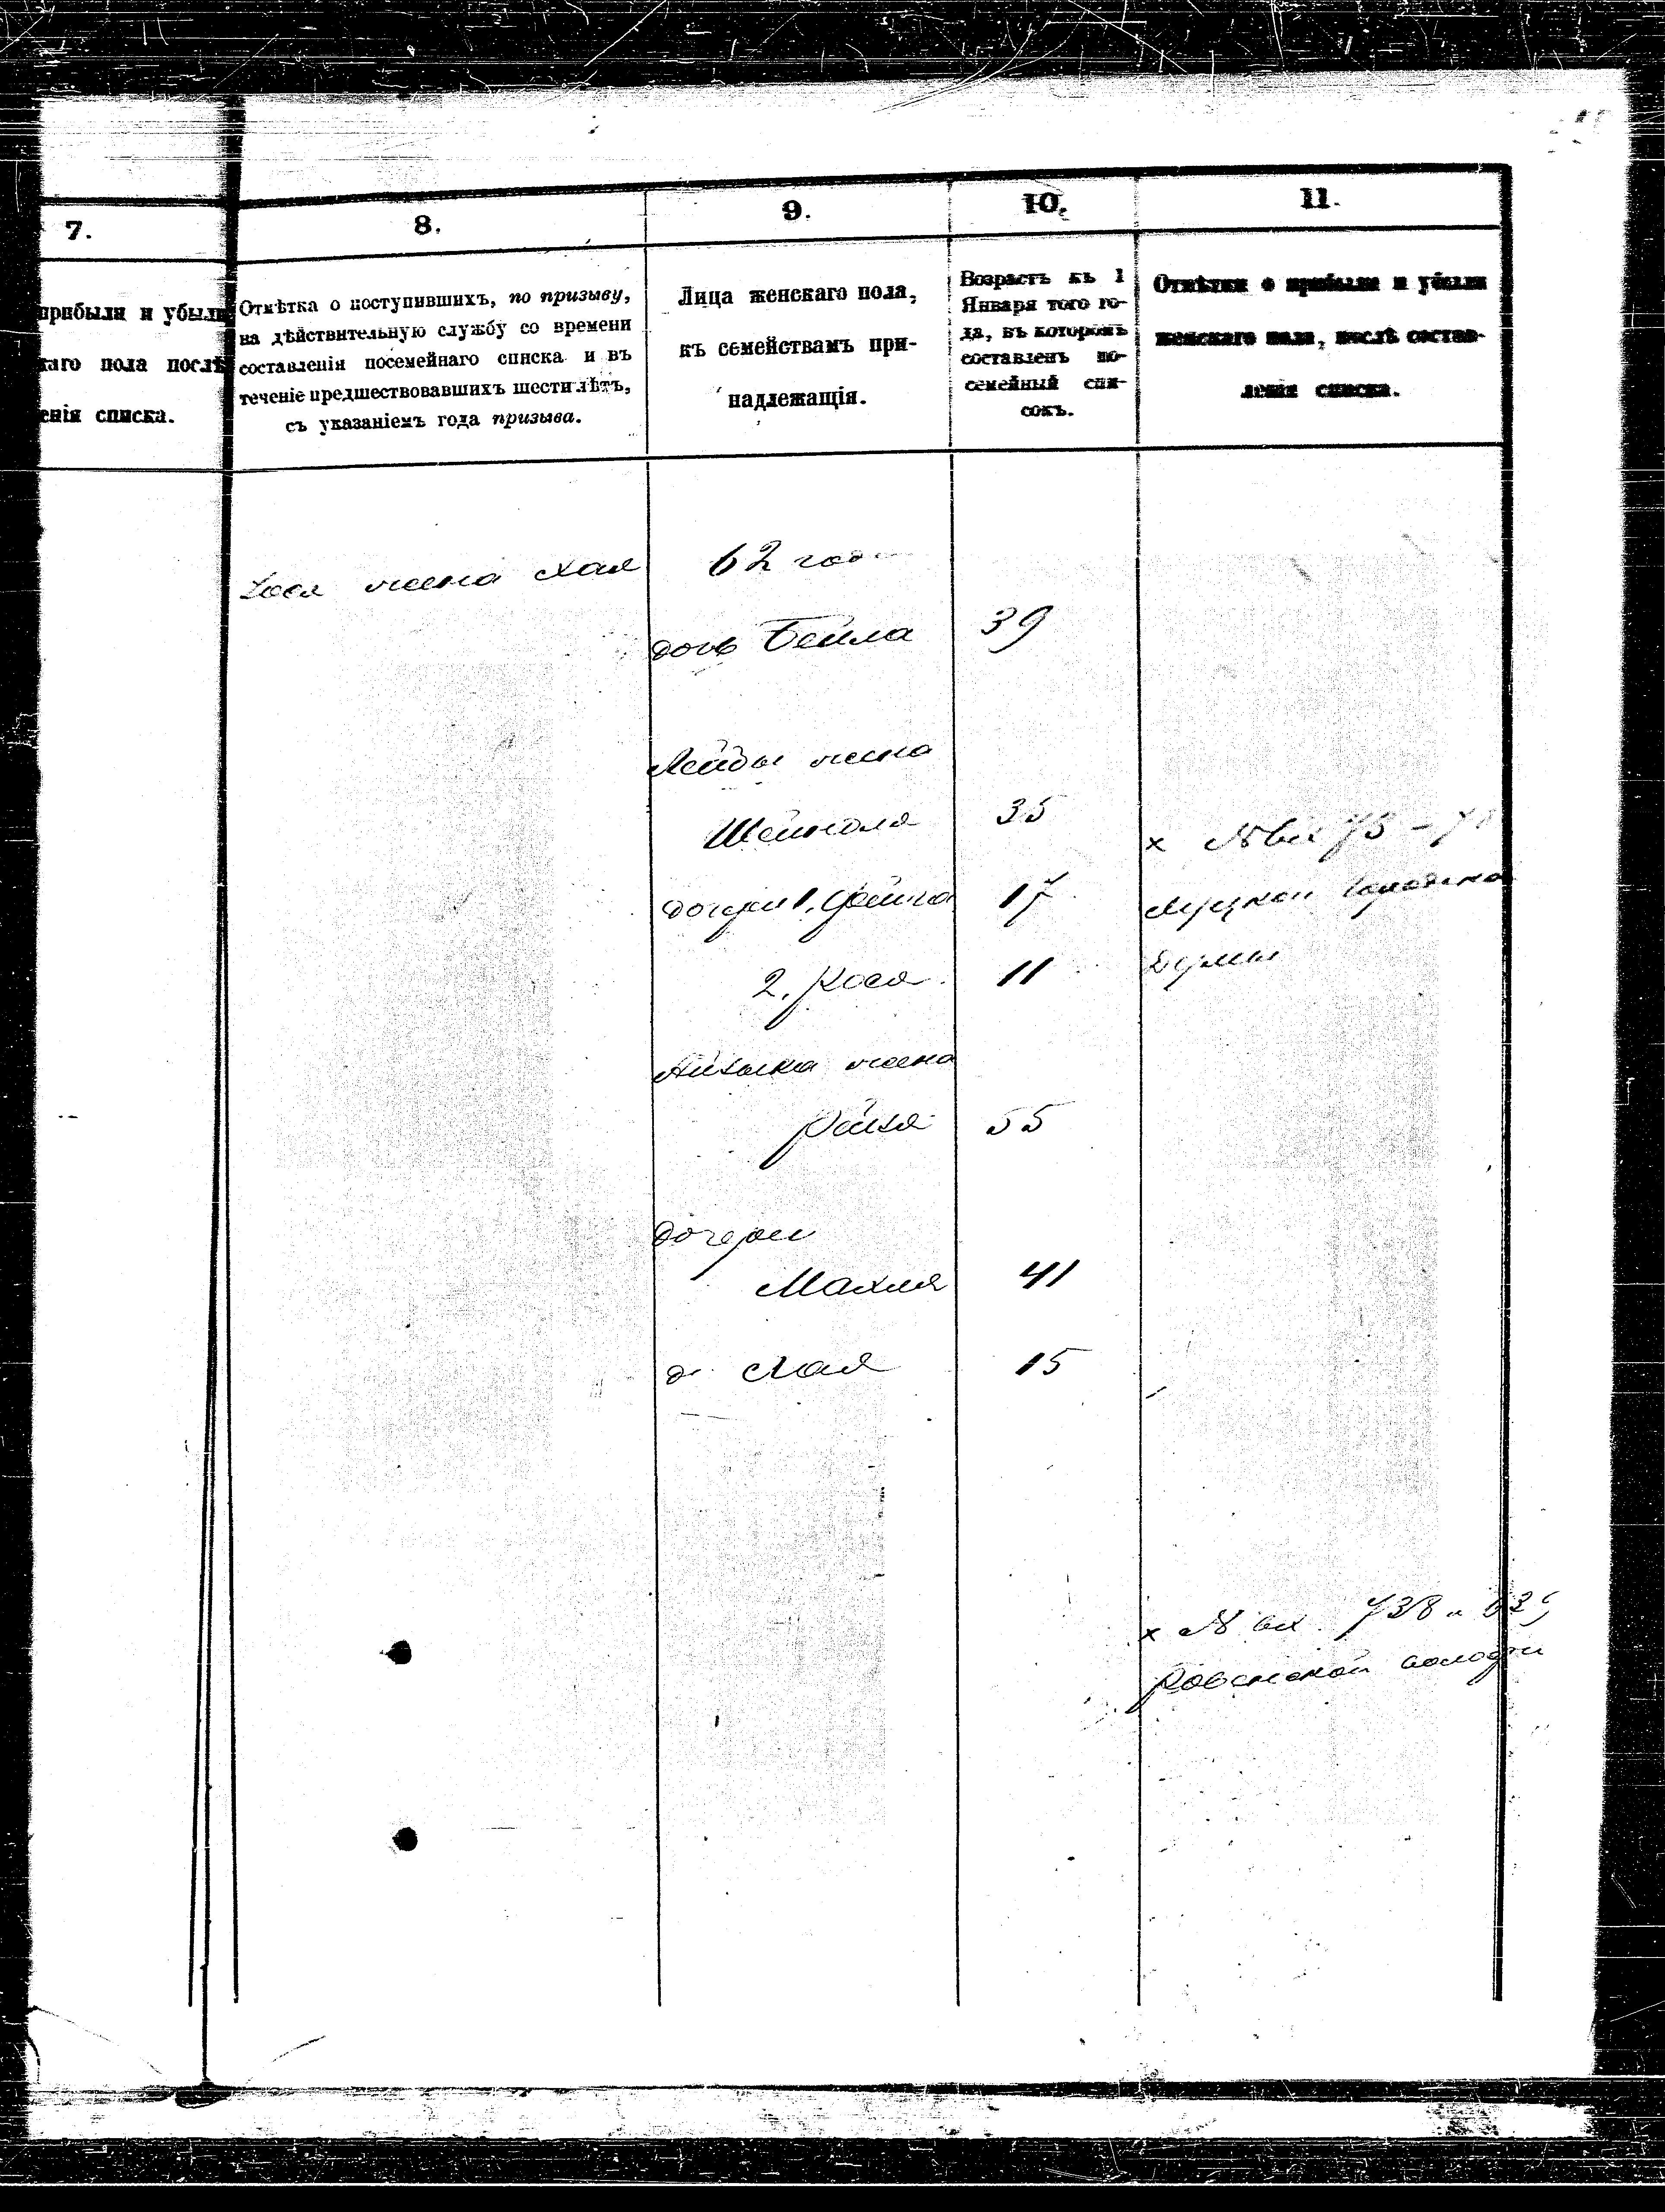 7.
8.
9.
10.
11.
прибыли и убыли
каго пола послѣ
енія списка.
Отмѣтка о поступившихъ, по призыву,
на дѣйствительную службу со времени
составленія посемейнаго списка и въ
теченіе предшествовавшихъ шести лѣтъ,
съ указаніемъ года призыва.
Лица женскаго пола,
къ семействамъ при-
надлежащія.
Возрастъ къ 1
Января того го-
да, въ которомъ
составленъ по-
семейный спи-
сокъ.
Отмѣтки о прибыли и убыли
женскаго пола, послѣ состав-
ленія списка.
жена Хая 62
дочь Бейла 39
Лейбы жена
35
дочери 1. 17
2. Рося 11
Думы
жена
Рейзя 55
дочери
Махля 41
д. Хая 15
х № вх. 738 и
Ровенской волости